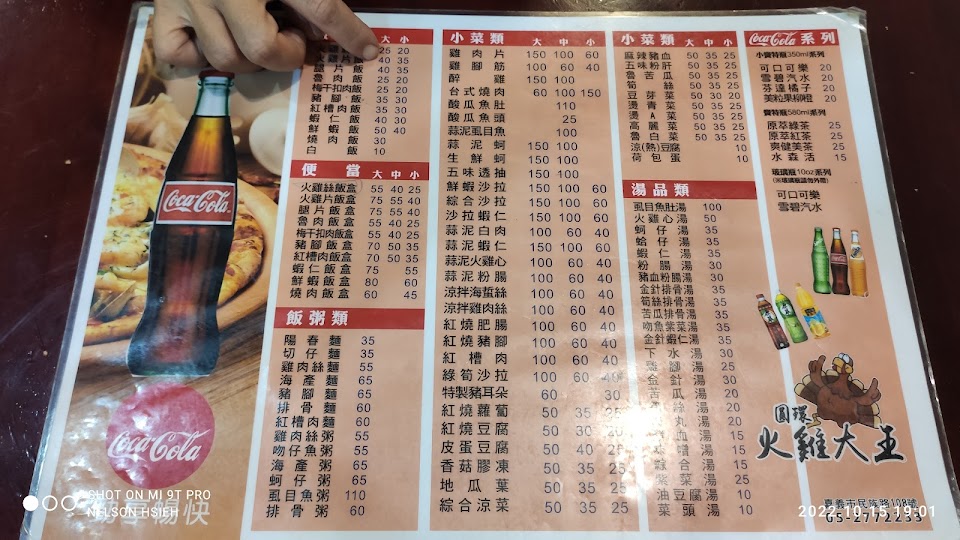 大 小
25 20
40 35
飯 40 35
魯肉飯 25 20
梅干扣肉飯 25 20
豬腳飯 35 30
紅槽肉飯 35 30
蝦仁飯 40 30
鮮蝦飯 50 40
燒肉飯 30
白飯 10
便當 大 中 小
火雞絲飯盒 55 40 25
火雞片飯盒 75 55 40
腿片飯盒 75 55 40
魯肉飯盒 55 40 25
梅干扣肉飯盒 55 40 25
豬腳飯盒 70 50 35
紅槽肉飯盒 70 50 35
蝦仁飯盒 75 55
鮮蝦飯盒 80 60
燒肉飯盒 60 45
飯粥類
陽春麵 35
切仔麵 35
雞肉絲麵 55
海產麵 65
豬腳麵 65
排骨麵 60
紅槽肉麵 60
雞肉絲粥 55
吻仔魚粥 55
海產粥 65
蚵仔粥 65
虱目魚粥 110
排骨粥 60
小菜類 大 中 小
雞肉片 150 100 60
雞腳筋 100 60 40
醉雞 150 100
台式燒肉 60 100 150
酸瓜魚肚 110
酸瓜魚頭 25
蒜泥虱目魚 100
蒜泥蚵 150 100
生鮮蚵 150 100
五味透抽 150 100
鮮蝦沙拉 150 100 60
綜合沙拉 150 100 60
沙拉蝦仁 150 100 60
蒜泥白肉 100 60 40
蒜泥蝦仁 150 100 60
蒜泥火雞心 100 60 40
蒜泥粉腸 100 60 40
涼拌海蜇絲 100 60 40
涼拌雞肉絲 100 60 40
紅燒肥腸 100 60 40
紅燒豬腳 100 60 40
紅槽肉 100 60 40
綠筍沙拉 100 60 40
特製豬耳朵 60 30
紅燒蘿蔔 50 35 25
紅燒豆腐 50 30
皮蛋豆腐 50 40
香菇膠凍 50 35 25
地瓜葉 50 35 25
綜合涼菜 50 35 25
小菜類 大 中 小
麻辣豬血 50 35 25
五味粉肝 50 35 25
魯苦瓜 50 35 25
筍絲 50 35 25
豆芽菜 50 30 20
燙青菜 50 35 25
燙A菜 50 35 25
高麗菜 50 35 25
魯白菜 50 35 25
涼(熱)豆腐 10
荷包蛋 10
湯品類
虱目魚肚湯 100
火雞心湯 50
蚵仔湯 35
蛤仔湯 35
蝦仁湯 35
粉腸湯 30
豬血粉腸湯 30
金針排骨湯 35
筍絲排骨湯 35
苦瓜排骨湯 35
吻魚紫菜湯 35
金針蝦仁湯 35
下水湯 30
雞腳湯 30
金針湯 30
苦瓜湯 20
絲湯 20
丸湯 20
血湯 15
合湯 15
湯 15
菜湯 15
油豆腐湯 10
菜頭湯 10
Coca-Cola 系列
小寶特瓶350ml系列
可口可樂 20
雪碧汽水 20
芬達橘子 20
美粒果柳橙 20
寶特瓶580ml系列
原萃綠茶 25
原萃紅茶 25
爽健美茶 25
水森活 15
玻璃瓶10oz系列
(※玻璃瓶請勿外帶)
可口可樂
雪碧汽水
圓環
火雞大王
嘉義市民族路108號
05-2772233
Coca-Cola
Coca-Cola
暢快
SHOT ON MI 9T PRO
NELSON HSIEH
2022.10.15 19:01